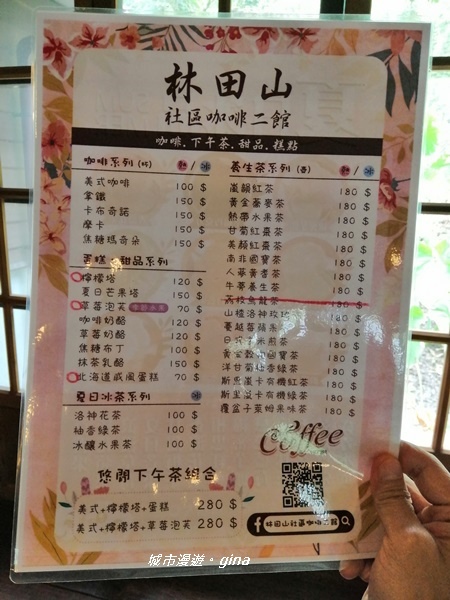 林田山
社區咖啡二館
咖啡.下午茶.甜品.糕點
咖啡系列(杯) 熱/冰
美式咖啡 100 $
拿鐵 150 $
卡布奇諾 150 $
摩卡 150 $
焦糖瑪奇朵 150 $
蛋糕、甜品系列
檸檬塔 120 $
夏日芒果塔 150 $
草莓泡芙 季節水果 70 $
咖啡奶酪 120 $
草莓奶酪 120 $
焦糖布丁 100 $
抹茶乳酪 150 $
北海道戚風蛋糕 70 $
夏日冰茶系列 冰
洛神花茶 100 $
柚香綠茶 100 $
冰釀水果茶 100 $
養生茶系列(壺) 熱/冰
嵐韻紅茶 180 $
黃金蕎麥茶 180 $
熱帶水果茶 180 $
甘菊紅棗茶 180 $
美顏紅棗茶 180 $
南非國寶茶 180 $
人蔘黃耆茶 180 $
牛蒡養生茶 180 $
荔枝烏龍茶 180 $
山楂洛神玫瑰 180 $
蔓越莓蘋果 180 $
煎茶 180 $
國寶茶 180 $
洋甘菊柚香綠茶 180 $
斯里蘭卡有機紅茶 180 $
斯里蘭卡有機綠茶 180 $
覆盆子萊姆果味茶 180 $
Coffee
悠閒下午茶組合
美式+檸檬塔+蛋糕 280 $
美式+檸檬塔+草莓泡芙 280 $
林田山社區咖啡二館
城市漫遊。gina